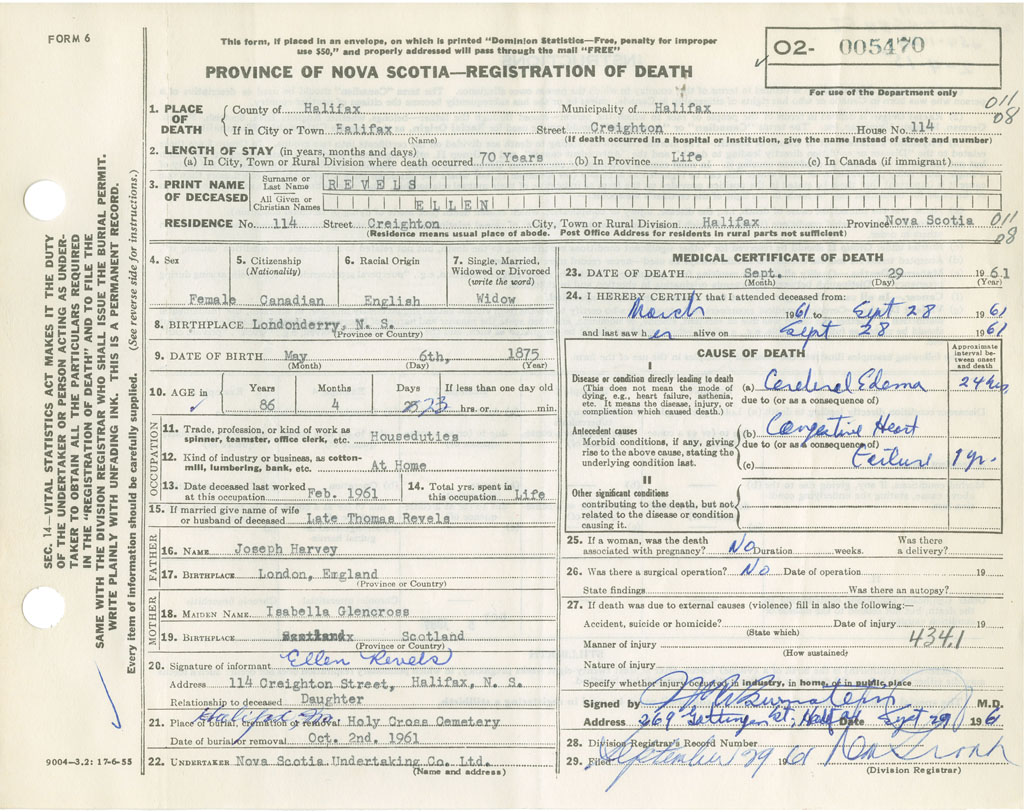 FORM 6
This form, if placed in an envelope, on which is printed "Dominion Statistics—Free, penalty for improper
use $50," and properly addressed will pass through the mail "FREE"
O2- 005470
For use of the Department only
PROVINCE OF NOVA SCOTIA—REGISTRATION OF DEATH
1. PLACE OF DEATH
County of Halifax Municipality of Halifax 011
08
If in City or Town Halifax Street Creighton House No. 114
(Name) (If death occurred in a hospital or institution, give the name instead of street and number)
2. LENGTH OF STAY (in years, months and days)
(a) In City, Town or Rural Division where death occurred 70 Years (b) In Province Life (c) In Canada (if immigrant)
3. PRINT NAME OF DECEASED
Surname or Last Name REVELS
All Given or Christian Names ELLEN
RESIDENCE No. 114 Street Creighton City, Town or Rural Division Halifax Province Nova Scotia 011
08
(Residence means usual place of abode. Post Office Address for residents in rural parts not sufficient)
4. Sex Female
5. Citizenship (Nationality) Canadian
6. Racial Origin English
7. Single, Married, Widowed or Divorced (write the word) Widow
8. BIRTHPLACE Londonderry, N. S.
(Province or Country)
9. DATE OF BIRTH May 6th, 1875
(Month) (Day) (Year)
10. AGE in Years Months Days If less than one day old
86 4 23 hrs. or min.
OCCUPATION
11. Trade, profession, or kind of work as
spinner, teamster, office clerk, etc. Houseduties
12. Kind of industry or business, as cotton-
mill, lumbering, bank, etc. At Home
13. Date deceased last worked
at this occupation Feb. 1961
14. Total yrs. spent in
this occupation Life
15. If married give name of wife
or husband of deceased Late Thomas Revels
FATHER
16. NAME Joseph Harvey
17. BIRTHPLACE London, England
(Province or Country)
MOTHER
18. MAIDEN NAME Isabella Glencross
19. BIRTHPLACE Scotland
(Province or Country)
20. Signature of informant Ellen Revels
Address 114 Creighton Street, Halifax, N. S.
Relationship to deceased Daughter
21. Place of burial, cremation or removal Halifax Holy Cross Cemetery
Date of burial or removal Oct. 2nd. 1961
22. UNDERTAKER Nova Scotia Undertaking Co. Ltd.
(Name and address)
MEDICAL CERTIFICATE OF DEATH
23. DATE OF DEATH Sept. 29 1961
(Month) (Day) (Year)
24. I HEREBY CERTIFY that I attended deceased from:
March 1961 to Sept 28 1961
and last saw her alive on Sept 28 1961
CAUSE OF DEATH
Approximate interval between onset and death
I
Disease or condition directly leading to death
(This does not mean the mode of
dying, e.g., heart failure, asthenia,
etc. It means the disease, injury, or
complication which caused death.)
(a) Cerebral Edema 24 hrs
due to (or as a consequence of)
Antecedent causes
Morbid conditions, if any, giving
rise to the above cause, stating the
underlying condition last.
(b) Congestive Heart
due to (or as a consequence of)
(c) Failure 1 yr.
II
Other significant conditions
contributing to the death, but not
related to the disease or condition
causing it.
25. If a woman, was the death
associated with pregnancy? No Duration weeks. Was there
a delivery?
26. Was there a surgical operation? No Date of operation 19
State findings Was there an autopsy?
27. If death was due to external causes (violence) fill in also the following:—
Accident, suicide or homicide? Date of injury 19
(State which)
Manner of injury 434.1
(How sustained)
Nature of injury
Specify whether injury occurred in industry, in home, or in public place
Signed by M.D.
Address 269 Gottingen St, Date Sept 29 1961
28. Division Registrar's Record Number
29. Filed September 29 1961
(Division Registrar)
SEC. 14—VITAL STATISTICS ACT MAKES IT THE DUTY
OF THE UNDERTAKER OR PERSON ACTING AS UNDER-
TAKER TO OBTAIN ALL THE PARTICULARS REQUIRED
IN THE "REGISTRATION OF DEATH" AND TO FILE THE
SAME WITH THE DIVISION REGISTRAR WHO SHALL ISSUE THE BURIAL PERMIT.
WRITE PLAINLY WITH UNFADING INK. THIS IS A PERMANENT RECORD.
Every item of information should be carefully supplied. (See reverse side for instructions.)
9004—3.2: 17-6-55